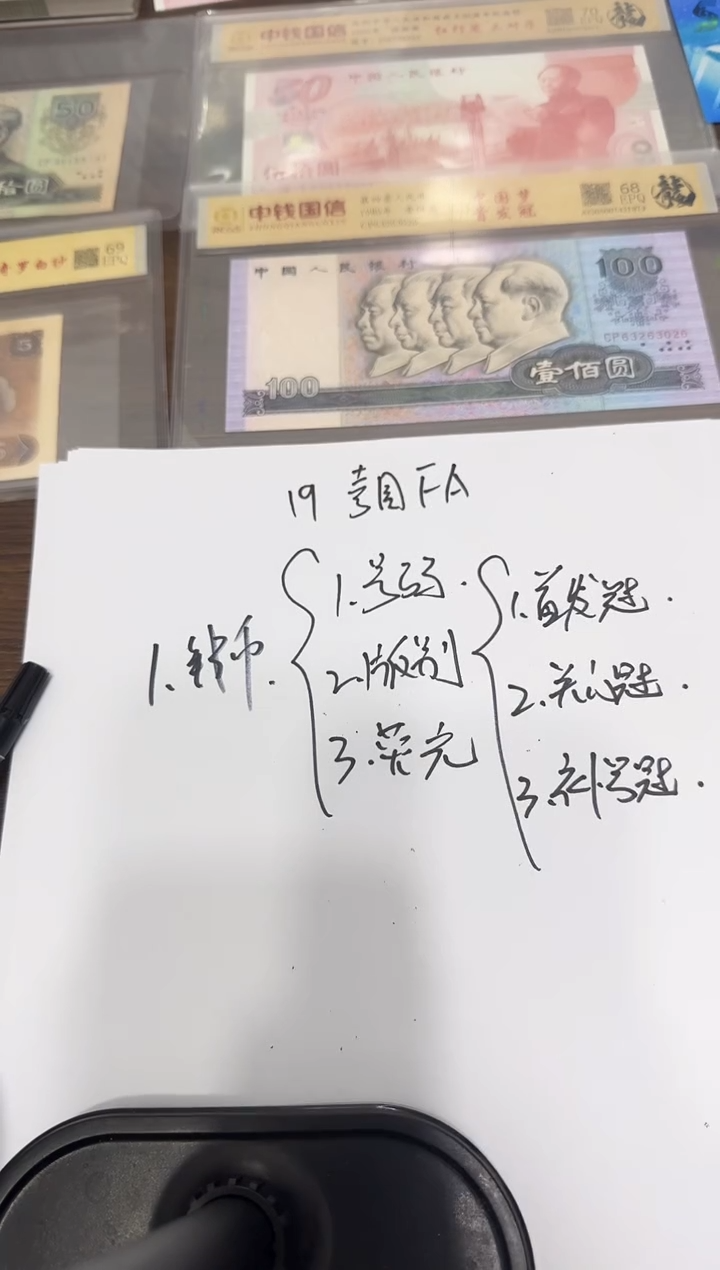 中钱国信
70
EPQ
龍
50
中国人民银行
50
伍拾圆
拾圆
中钱国信
中国梦
首发冠
68
EPQ
龍
69
EPQ
中国人民银行
100
CP63263626
壹佰圆
100
5
19
FA
1.钱币.
1.号码.
2.版别
3.荧光
1.首发冠.
2.关门冠.
3.补号冠.